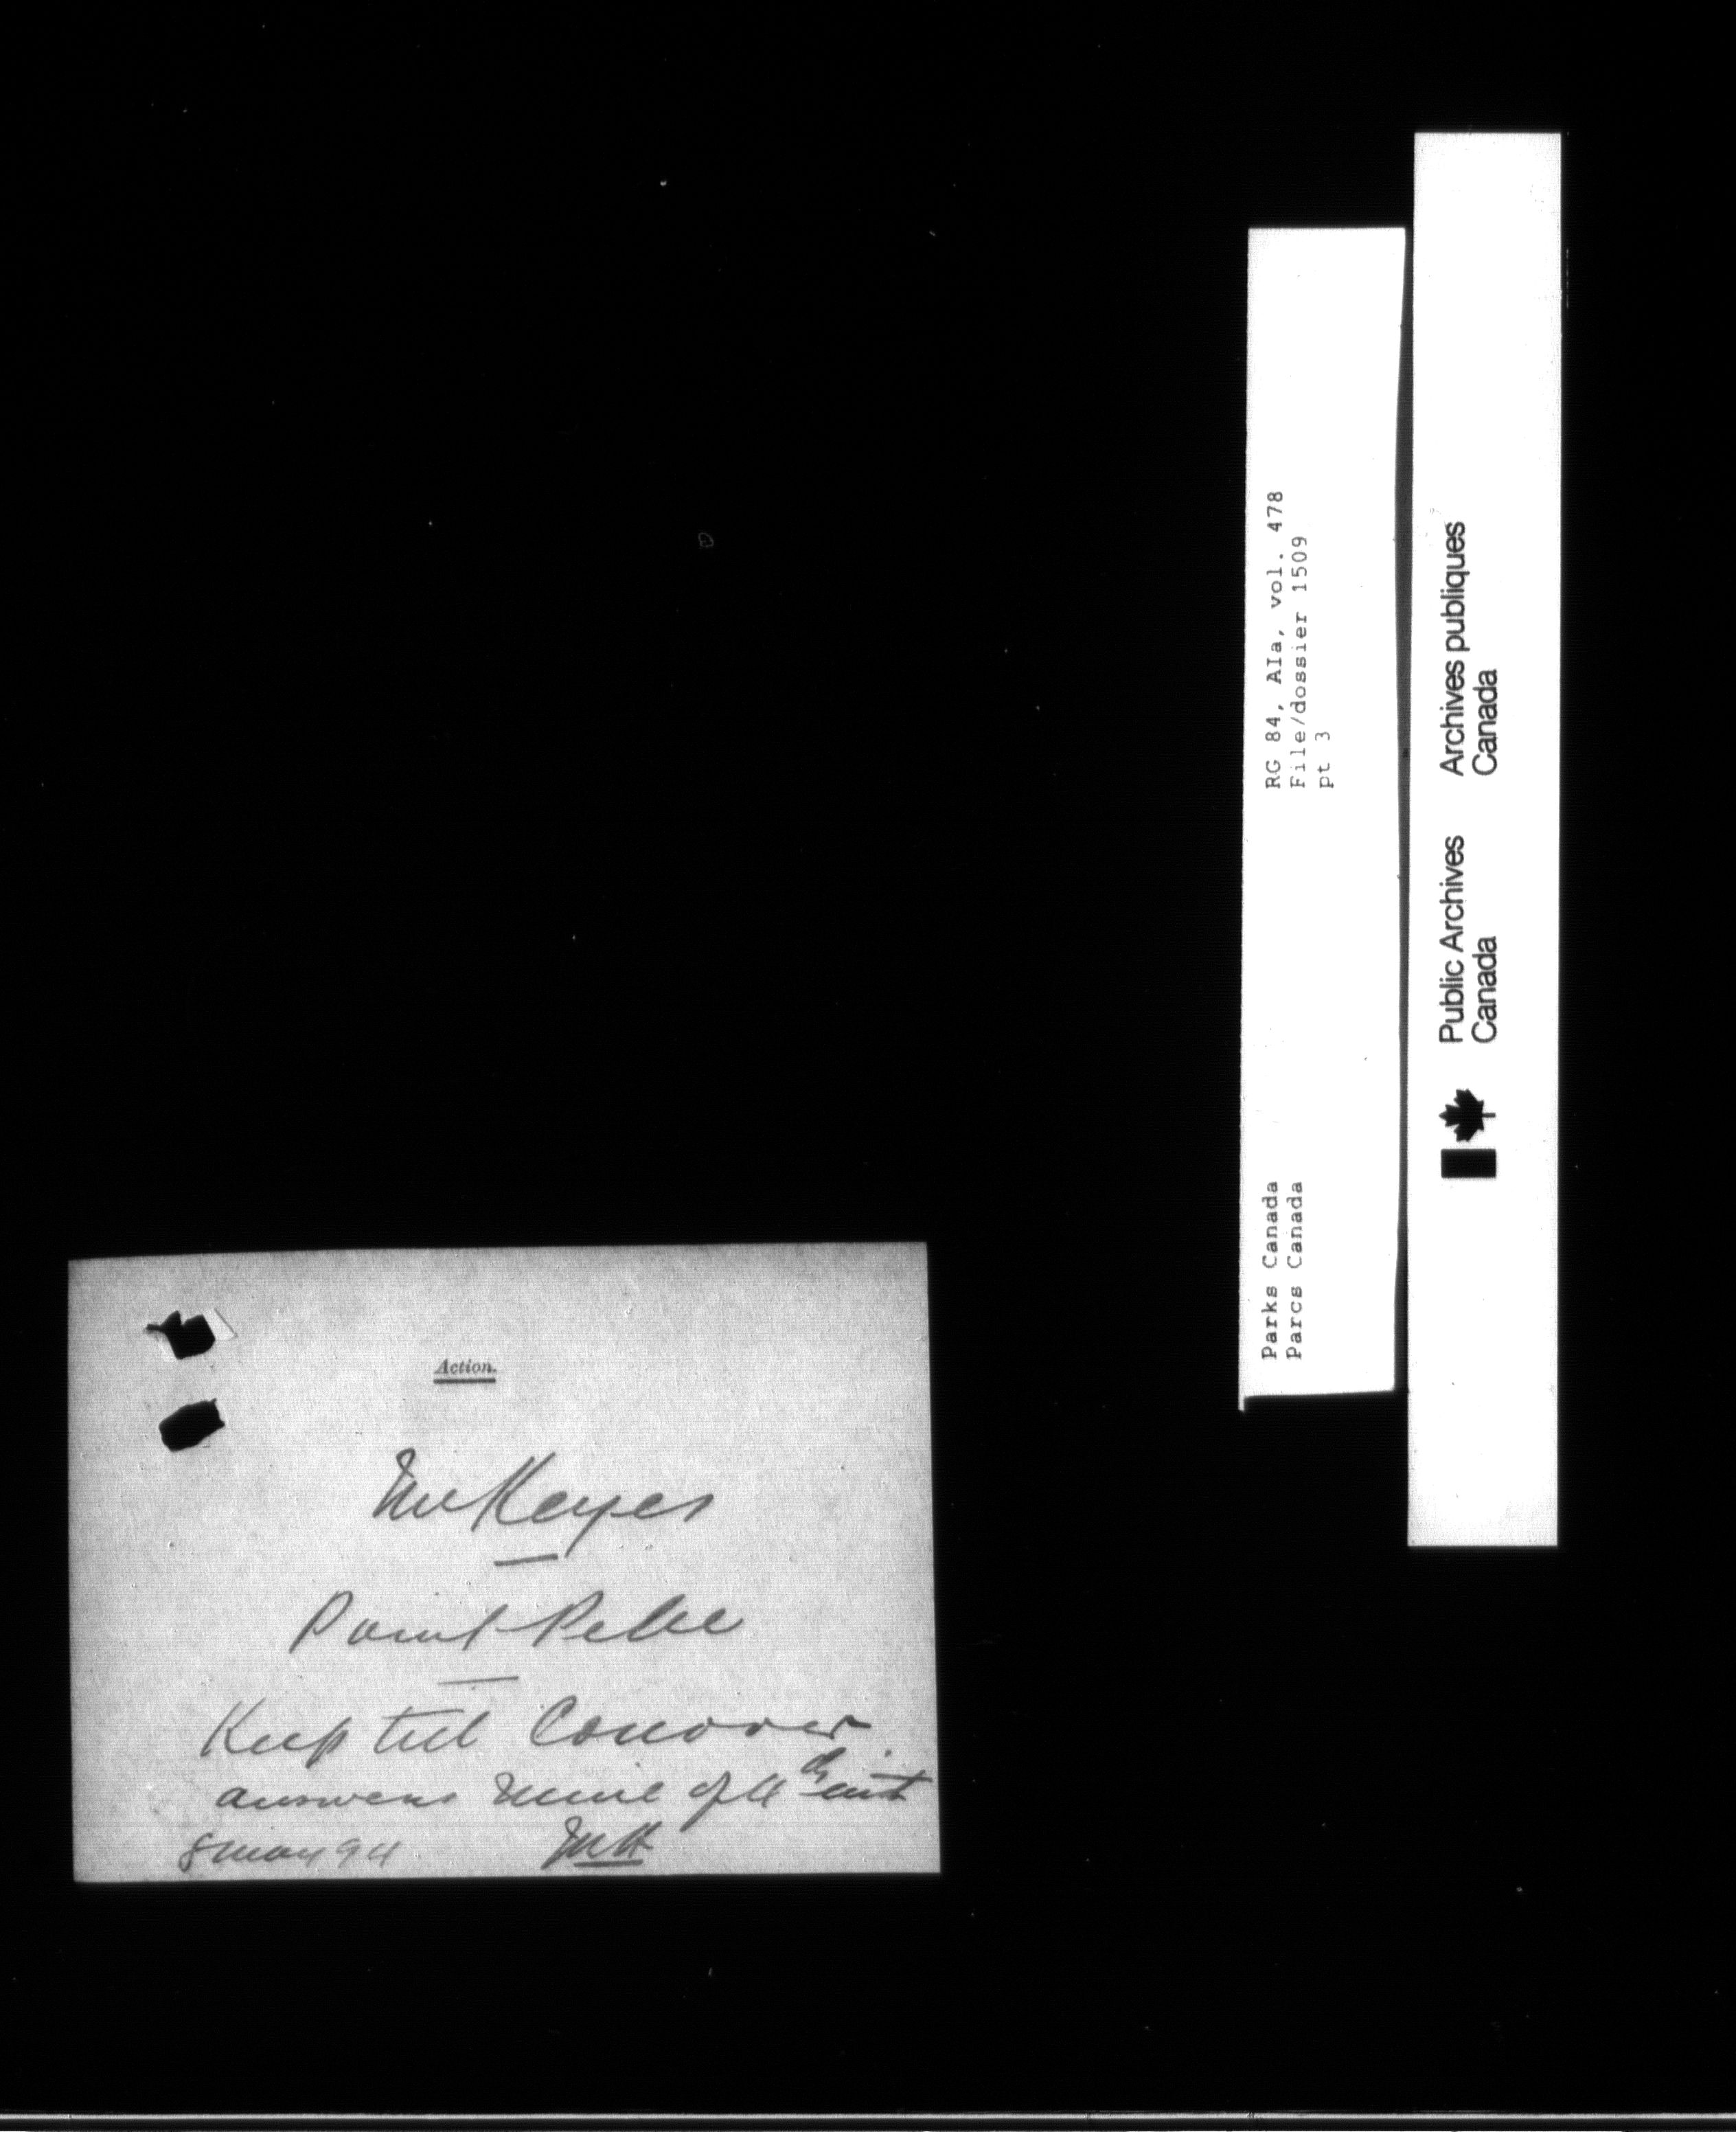 Action.
Mr Keyes
Point Pelee
Keep till Conover
answers mine of 4th inst
8 May 94
RG 84, AIa, vol. 478
File/dossier 1509
pt 3
Parks Canada
Parcs Canada
Public Archives
Canada
Archives publiques
Canada